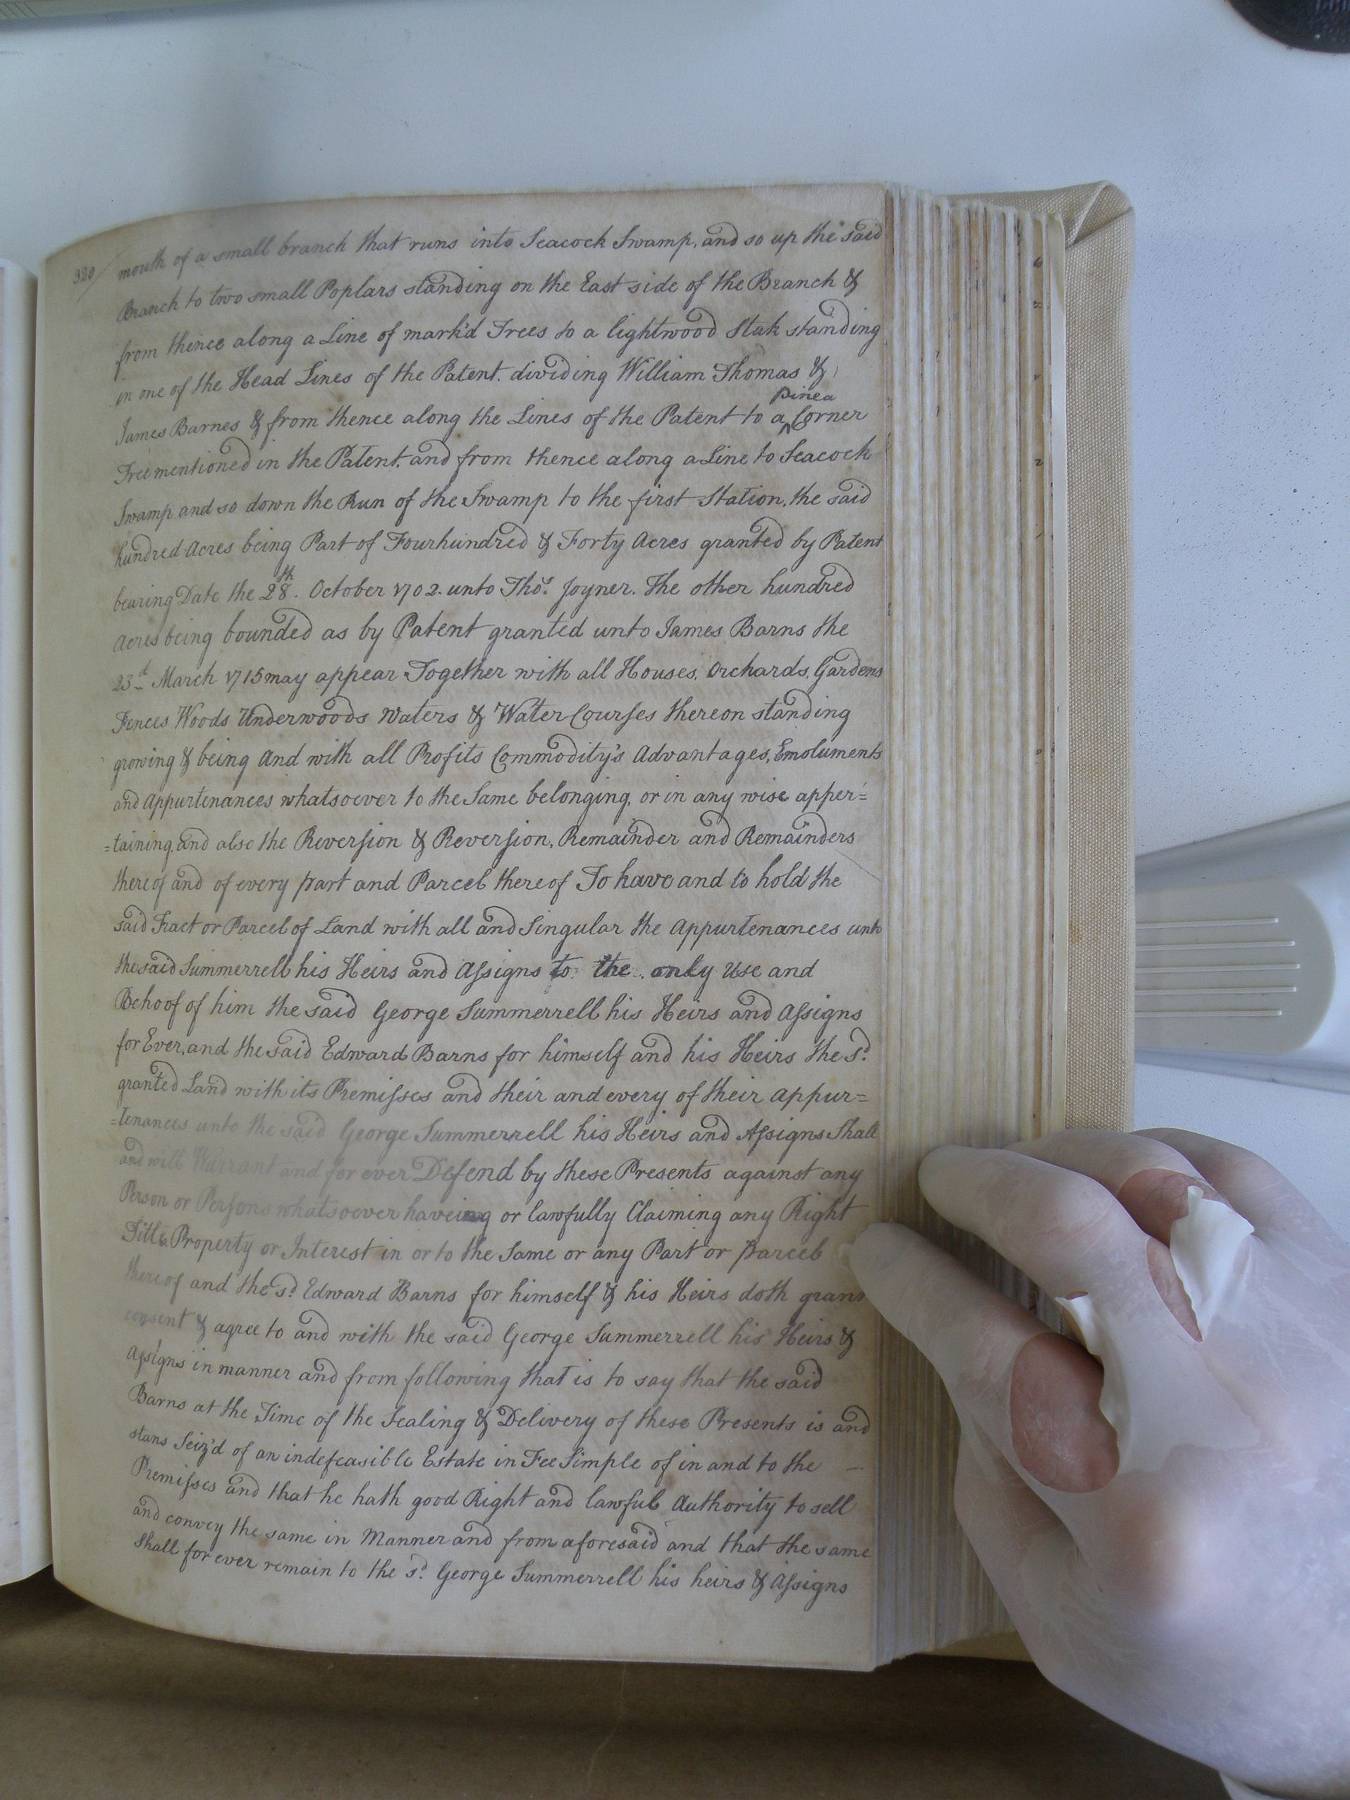 320/ mouth of a small branch that runs into Seacock Swamp, and so up the said
Branch to two small Poplars standing on the East side of the Branch &
from thence along a Line of mark'd Trees to a lightwood Stak standing
in one of the Head Lines of the Patent. dividing William Thomas &
James Barnes & from thence along the Lines of the Patent to a ^ Corner
pinea
Tree mentioned in the Patent. and from thence along a Line to Seacock
Swamp and so down the Run of the Swamp to the first Station, the said
hundred Acres being Part of Fourhundred & Forty Acres granted by Patent
bearing Date the 28th. October 1702. unto Thos. Joyner. The other hundred
Acres being bounded as by Patent granted unto James Barns the
23d March 1715 may appear Together with all Houses, Orchards, Gardens
Fences Woods Underwoods Waters & Water Courses thereon standing
growing & being And with all Profits Commodity's Advantages, Emoluments
and Appurtenances whatsoever to the Same belonging, or in any wise apper=
=taining, and also the Reversion & Reversion, Remainder and Remainders
thereof and of every part and Parcel thereof To have and to hold the
said Tract or Parcel of Land with all and Singular the Appurtenances unto
the said Summerrell his Heirs and Assigns to the only Use and
Behoof of him the said George Summerrell his Heirs and Assigns
for Ever, and the said Edward Barns for himself and his Heirs the sd.
granted Land with its Premisses and their and every of their Appur=
=tenances unto the said George Summerrell his Heirs and Assigns Shall
and will Warrant and for ever Defend by these Presents against any
Person or Persons whatsoever haveing or lawfully Claiming any Right
Title Property or Interest in or to the Same or any Part or parcel
thereof and the sd. Edward Barns for himself & his Heirs doth grant
consent & agree to and with the said George Summerrell his Heirs &
Assigns in manner and from following that is to say that the said
Barns at the Time of the Sealing & Delivery of these Presents is and
stans Seiz'd of an indefeasible Estate in Fee Simple of in and to the —
Premisses and that he hath good Right and lawful Authority to sell
and convey the same in Manner and from aforesaid and that the same
Shall for ever remain to the sd. George Summerrell his heirs & Assigns